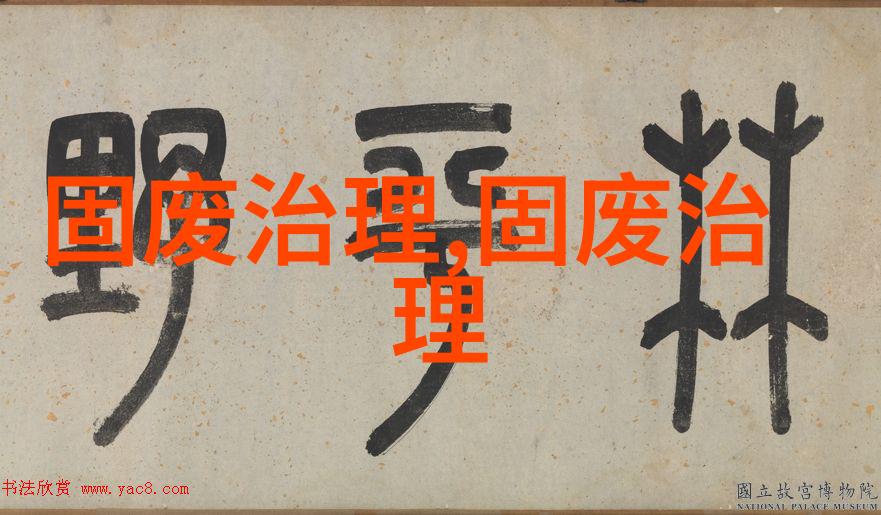 固废治理,固废治
理
林平野
书法欣赏 www.yac8.com
國立故宮博物院
NATIONAL PALACE MUSEUM